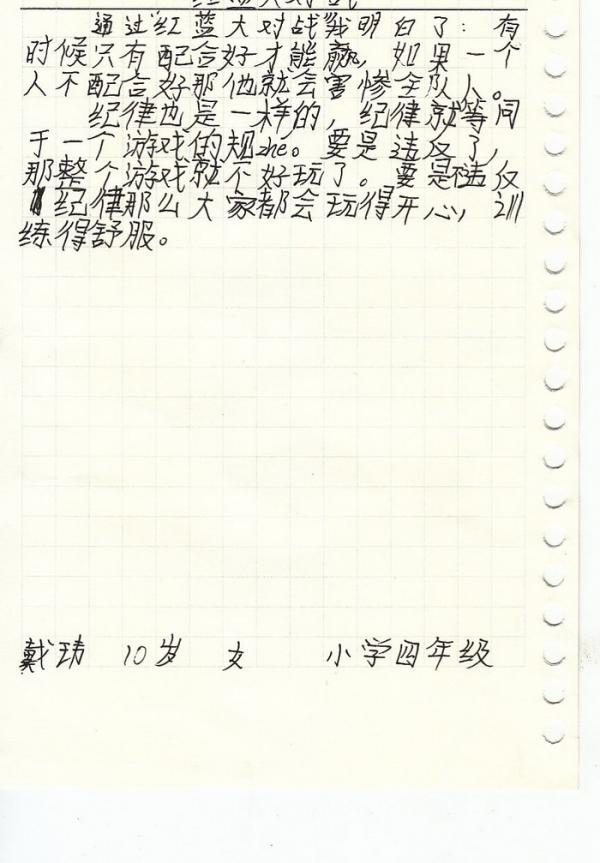 红蓝大对战
通过红蓝大对战我明白了：有
时候只有配合好才能赢，如果一个
人不配合好那他就会害惨全队人。
纪律也是一样的，纪律就等同
于一个游戏的规zhe。要是违反了，
那整个游戏就不好玩了。要是不违反
纪律那么大家都会玩得开心，训
练得舒服。
戴玮 10岁 女 小学四年级